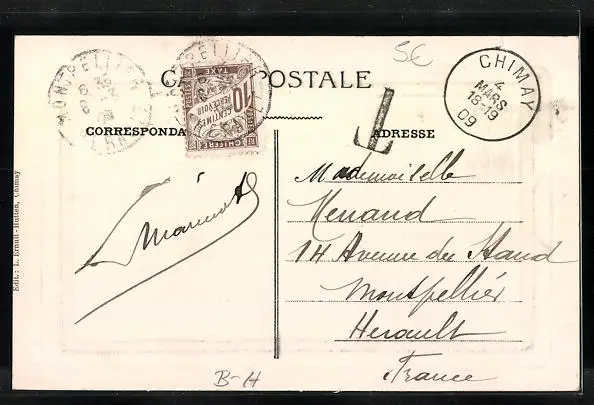 5€
CHIMAY
4
MARS
18-19
09
MONTPELLIER
CARTE POSTALE
10
CENTIMES
A PERCEVOIR
CHIFFRE
TAXE
T
CORRESPONDA
ADRESSE
Mademoiselle
Renaud
14 Avenue du Stand
Montpellier
Herault
France
Edit.: L. Erault-Hutten, Chimay
B-H